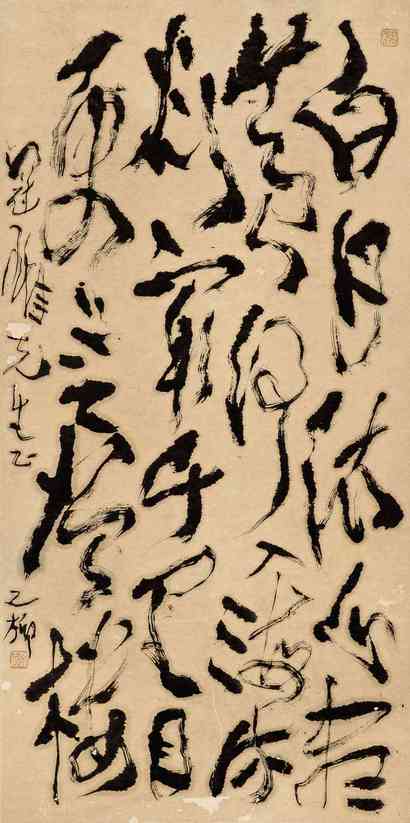 白日依山盡
黄河入海流
欲窮千里目
更上一層樓
先生正
之柳